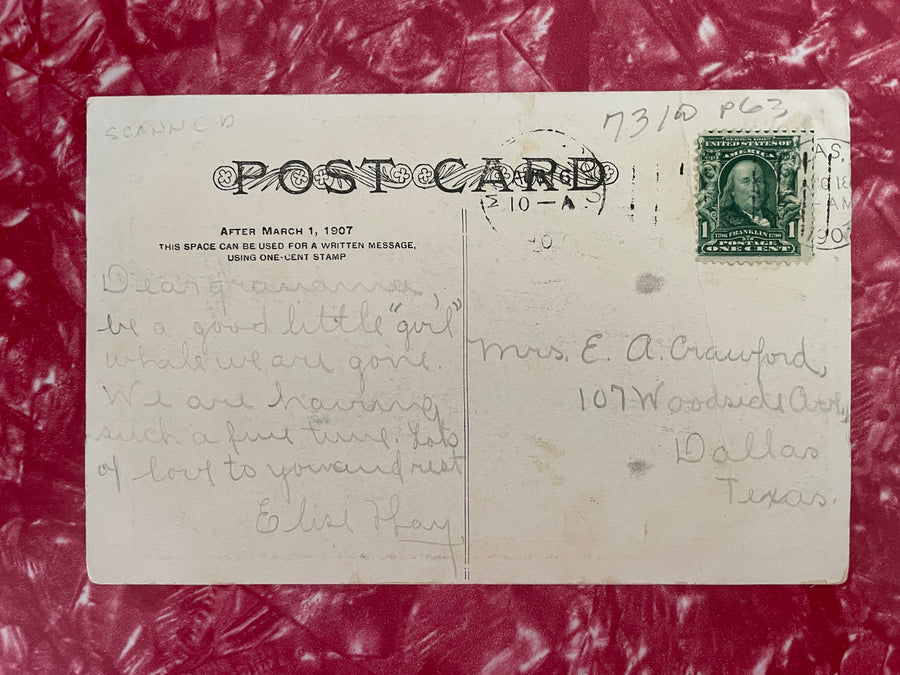 SCANNED
731D P63
POST CARD
AFTER MARCH 1, 1907
THIS SPACE CAN BE USED FOR A WRITTEN MESSAGE,
USING ONE-CENT STAMP
Dear grandma,
be a good little "girl"
while we are gone.
We are having
such a fine time. Lots
of love to you and rest
Elise Hay
10 - A
SERIES 1902
UNITED STATES OF
AMERICA
1706 FRANKLIN 1790
1 POSTAGE 1
ONE CENT
AS,
AM
190
Mrs. E. A. Crawford,
107 Woodside Ave,
Dallas
Texas.